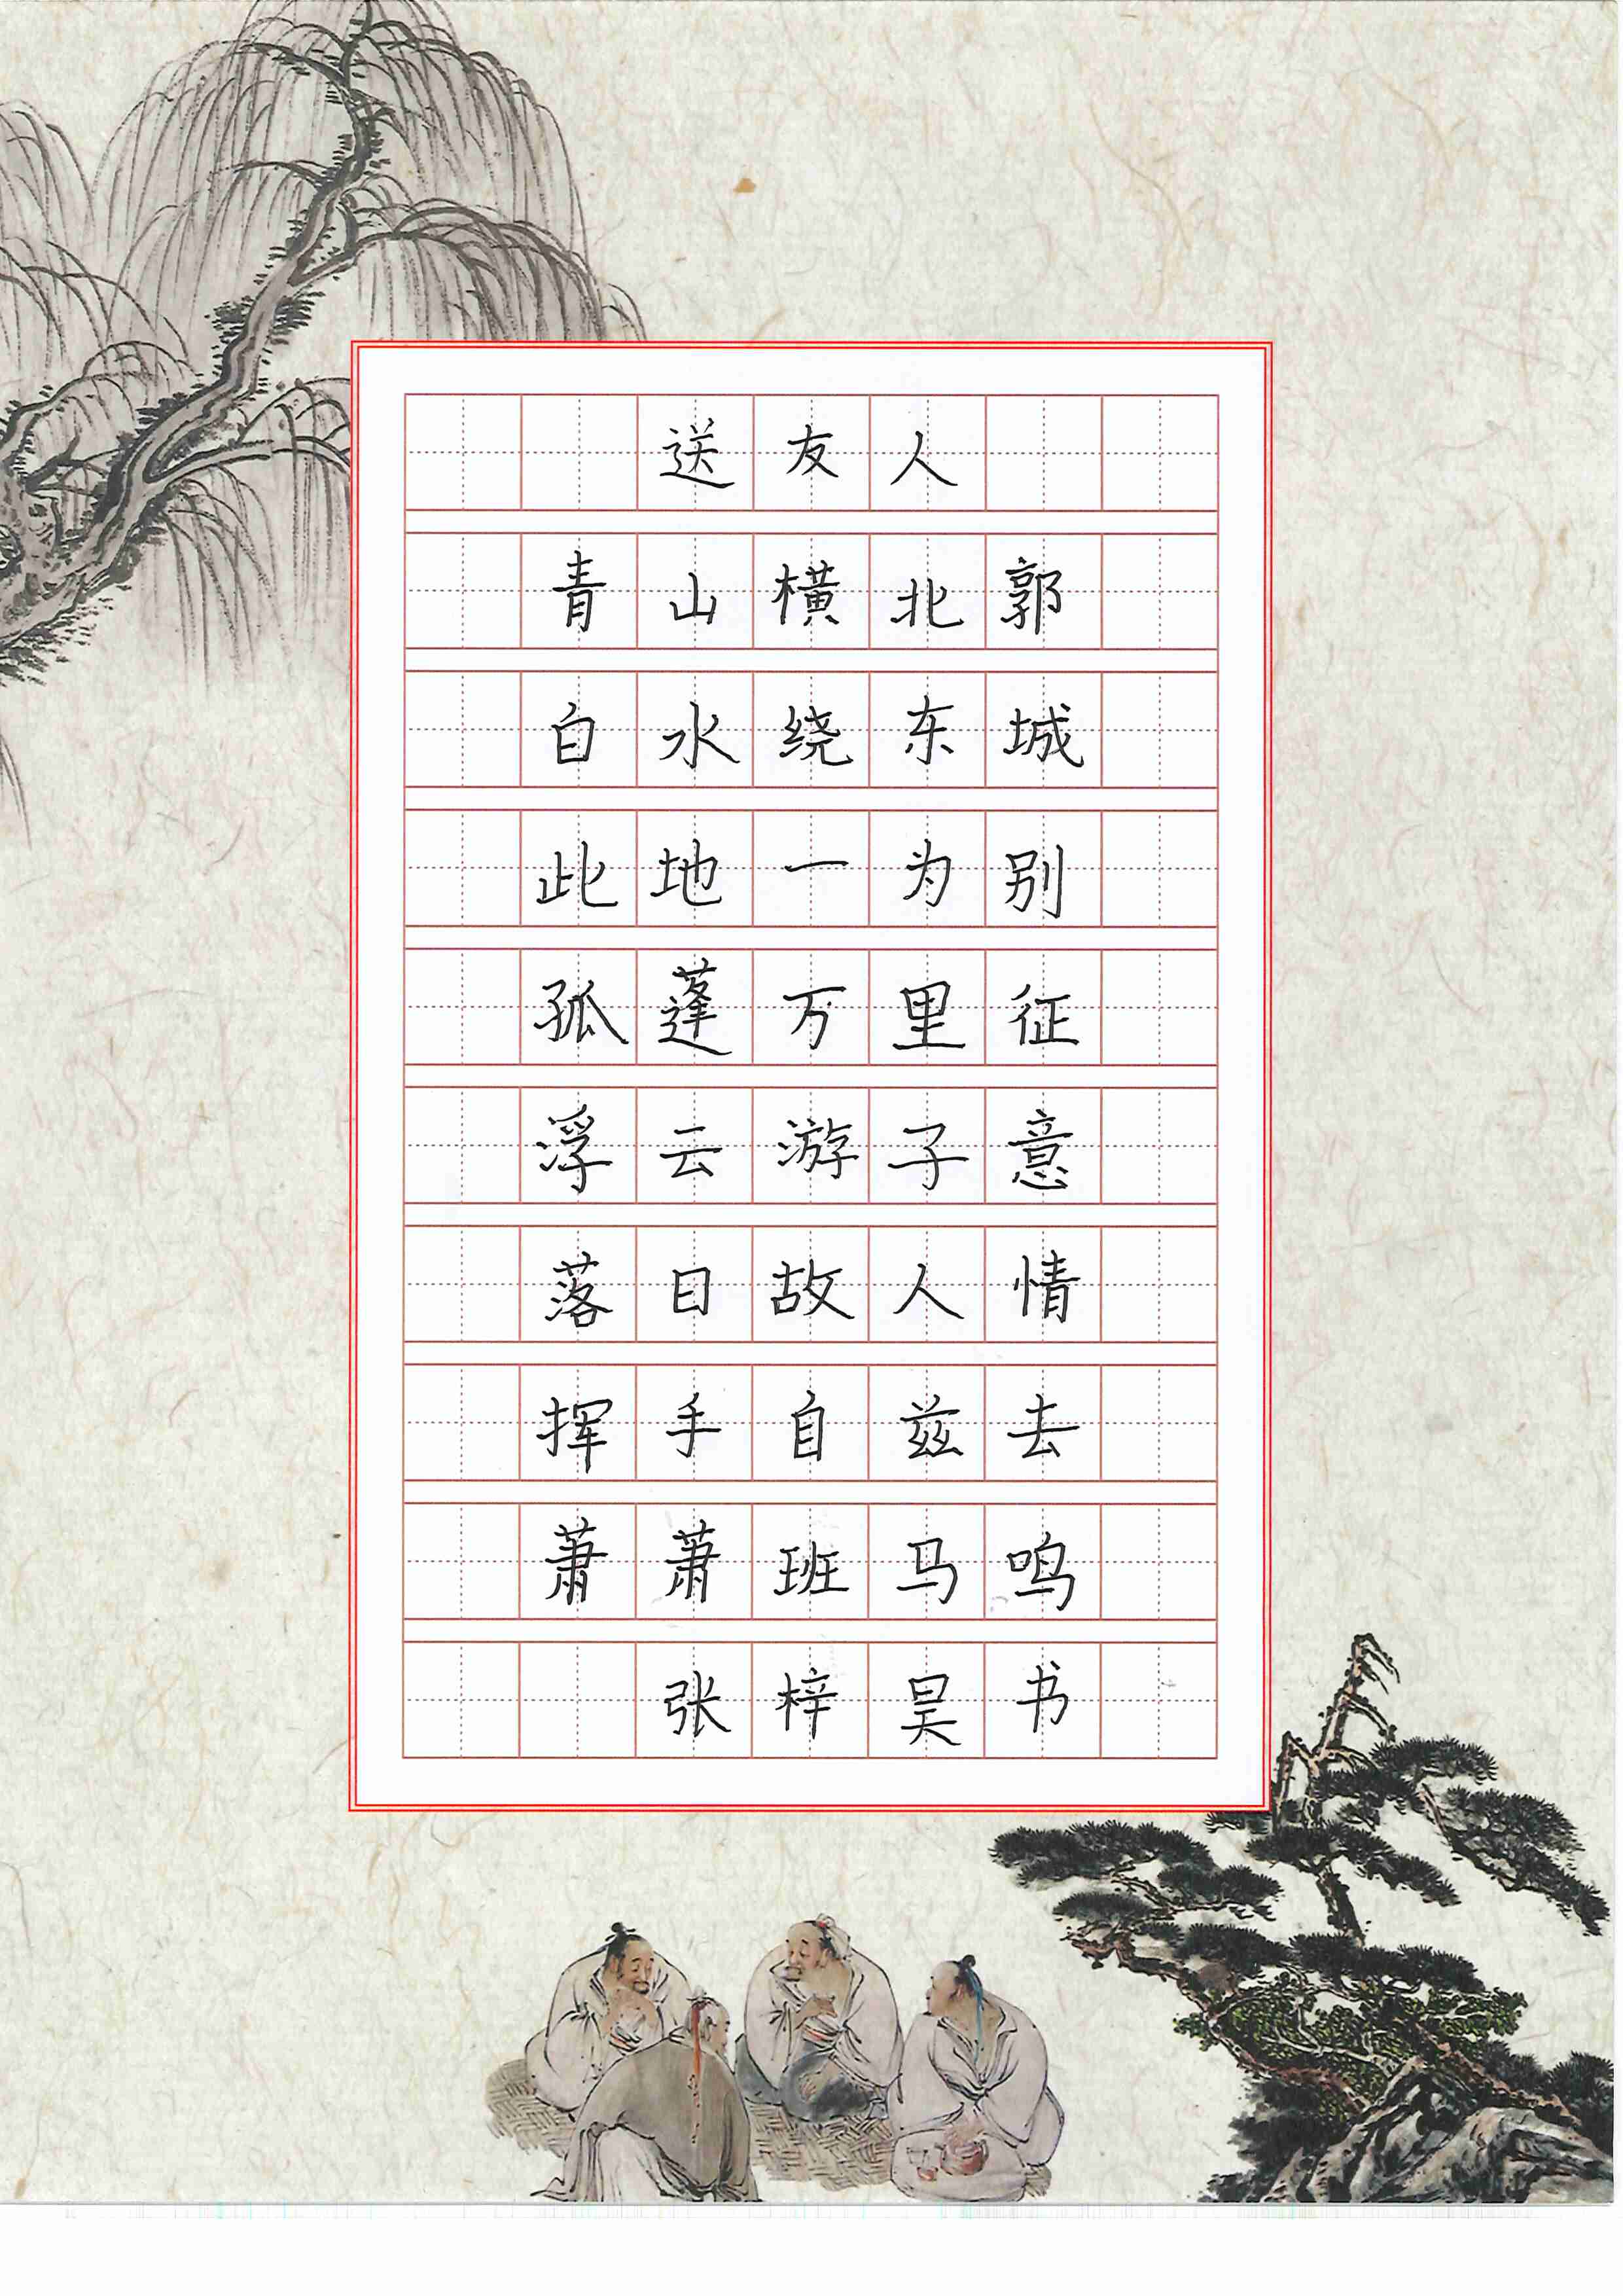 送友人
青山横北郭
白水绕东城
此地一为别
孤蓬万里征
浮云游子意
落日故人情
挥手自兹去
萧萧班马鸣
张梓昊书